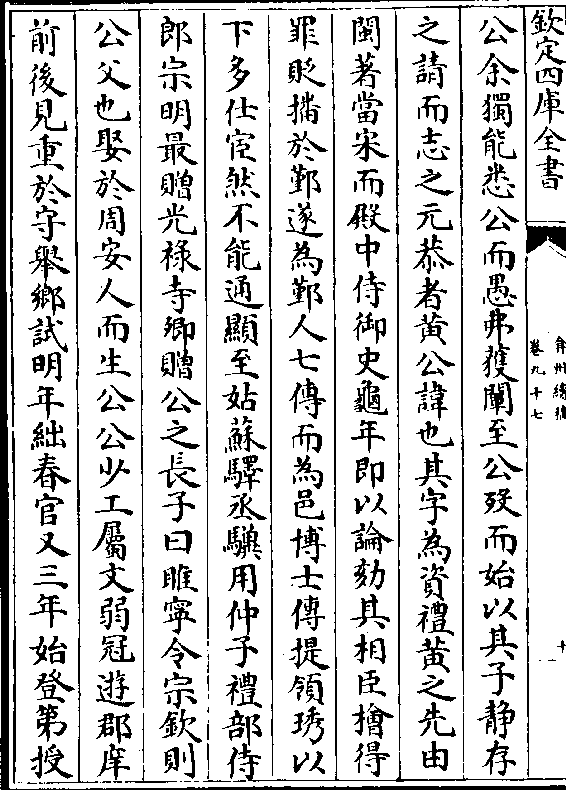 欽定四庫全書
卷九十七
公余獨能悉公而愚弗獲闡至公歿而始以其子靜存
之請而志之元恭者黄公諱也其字為資禮黄之先由
閩著當宋而殿中侍御史龜年即以論劾其相臣檜得
罪貶播於鄞遂為鄞人七傳而為邑博士傳提領琇以
下多仕宦然不能通顯至姑蘇驛丞驥用仲子禮部侍
郎宗明最贈光祿寺卿贈公之長子曰睢寧令宗欽則
公父也娶於周安人而生公公少工屬文弱冠遊郡庠
前後見重於守舉鄉試明年絀春官又三年始登第授